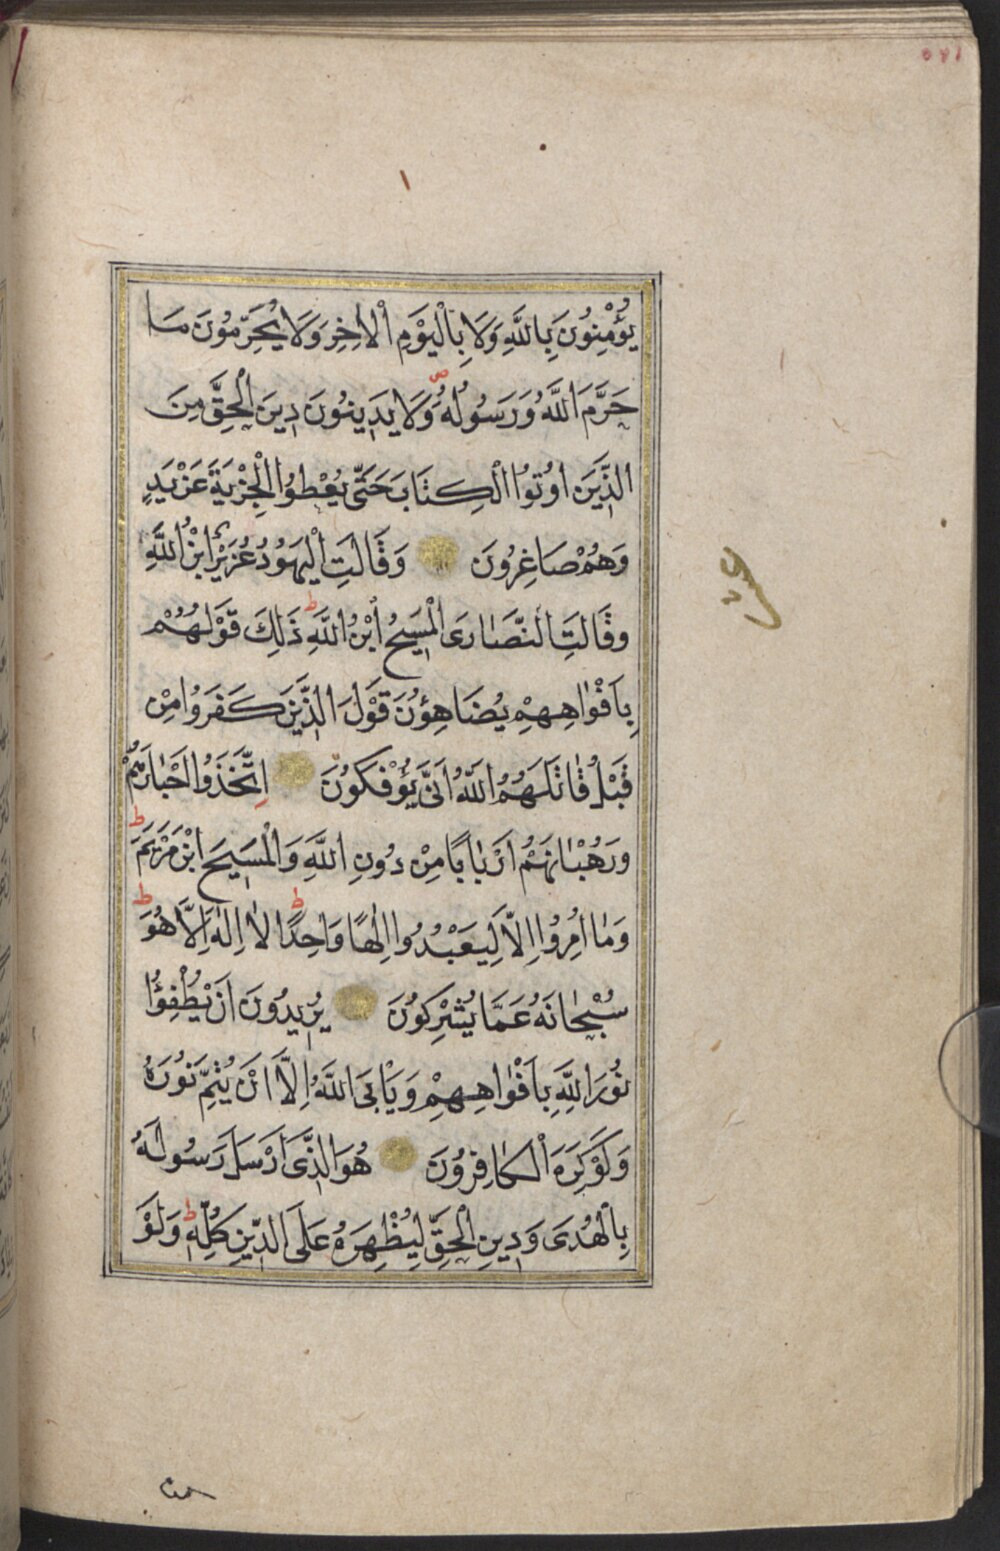 يُؤْمِنُونَ بِاللَّهِ وَلَا بِالْيَوْمِ الْاٰخِرِ وَلَا يُحَرِّمُونَ مَا
حَرَّمَ اللَّهُ وَرَسُولُهُ وَلَا يَدِينُونَ دِينَ الْحَقِّ مِنَ
الَّذِينَ اُوتُوا الْكِتَابَ حَتّٰى يُعْطُوا الْجِزْيَةَ عَنْ يَدٍ
وَهُمْ صَاغِرُونَ وَقَالَتِ الْيَهُودُ عُزَيْرٌ ابْنُ اللَّهِ
وَقَالَتِ النَّصَارَى الْمَسِيحُ ابْنُ اللَّهِ ط ذَلِكَ قَوْلُهُمْ
بِاَفْوَاهِهِمْ يُضَاهِؤُنَ قَوْلَ الَّذِينَ كَفَرُوا مِنْ
قَبْلُ قَاتَلَهُمُ اللَّهُ اَنّٰى يُؤْفَكُونَ اِتَّخَذُوا اَحْبَارَهُمْ
وَرُهْبَانَهُمْ اَرْبَابًا مِنْ دُونِ اللَّهِ وَالْمَسِيحَ ابْنَ مَرْيَمَ ط
وَمَا اُمِرُوا اِلَّا لِيَعْبُدُوا اِلٰهًا وَاحِدًا ط لَا اِلٰهَ اِلَّا هُوَ ط
سُبْحَانَهُ عَمَّا يُشْرِكُونَ يُرِيدُونَ اَنْ يُطْفِؤُا
نُورَ اللَّهِ بِاَفْوَاهِهِمْ وَيَاْبَى اللَّهُ اِلَّا اَنْ يُتِمَّ نُورَهُ
وَلَوْ كَرِهَ الْكَافِرُونَ هُوَ الَّذِى اَرْسَلَ رَسُولَهُ
بِالْهُدَى وَدِينِ الْحَقِّ لِيُظْهِرَهُ عَلَى الدِّينِ كُلِّهِ ط وَلَوْ